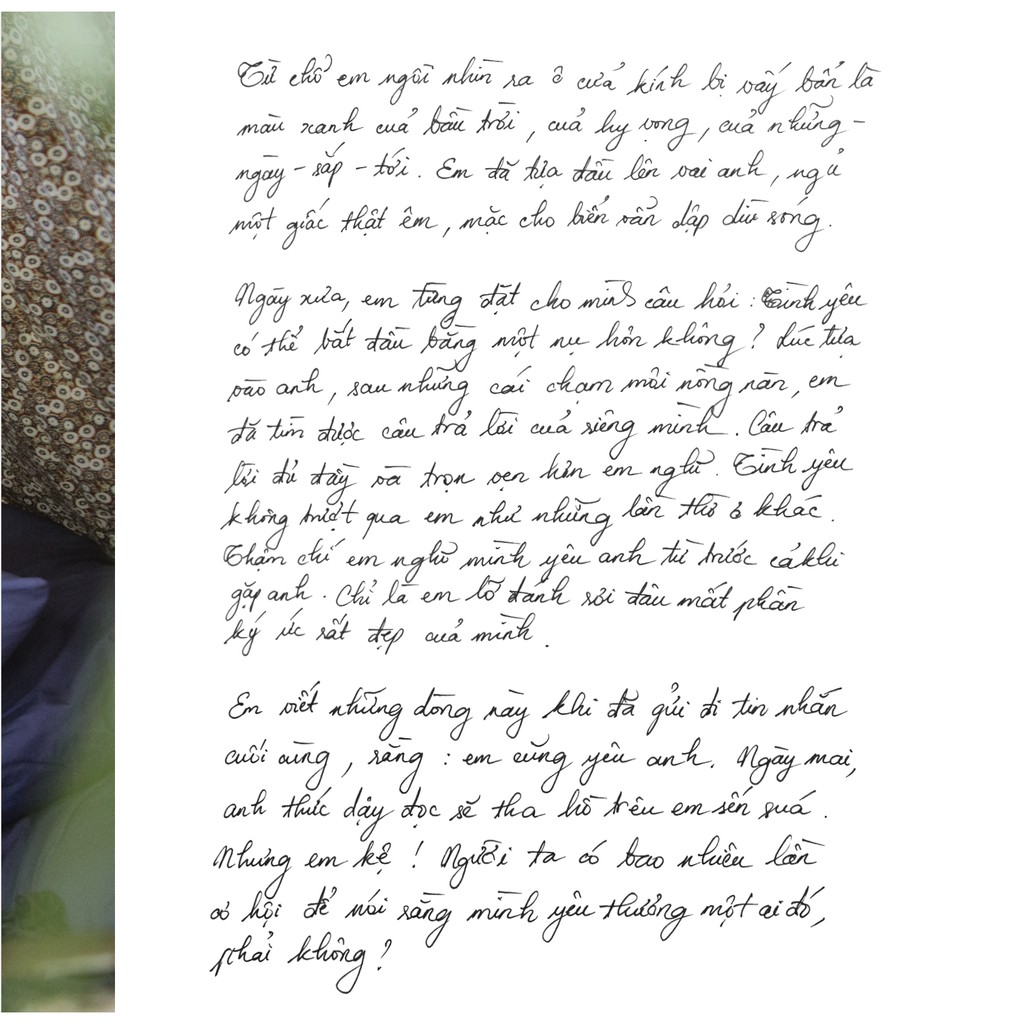 Từ chỗ em ngồi nhìn ra ô cửa kính bị vấy bẩn là
màu xanh của bầu trời, của hy vọng, của những-
ngày-sắp-tới. Em đã tựa đầu lên vai anh, ngủ
một giấc thật êm, mặc cho biển vẫn dập dìu sóng.
Ngày xưa, em từng đặt cho mình câu hỏi: Tình yêu
có thể bắt đầu bằng một nụ hôn không? Lúc tựa
vào anh, sau những cái chạm môi nồng nàn, em
đã tìm được câu trả lời của riêng mình. Câu trả
lời đủ đầy và trọn vẹn hơn em nghĩ. Tình yêu
không trượt qua em như những lần thờ ơ khác.
Thậm chí em nghĩ mình yêu anh từ trước cả khi
gặp anh. Chỉ là em lỡ đánh rơi đâu mất phần
ký ức rất đẹp của mình.
Em viết những dòng này khi đã gửi đi tin nhắn
cuối cùng, rằng: em cũng yêu anh. Ngày mai,
anh thức dậy đọc sẽ tha hồ trêu em sến súa.
Nhưng em kệ! Người ta có bao nhiêu lần
cơ hội để nói rằng mình yêu thương một ai đó,
phải không?